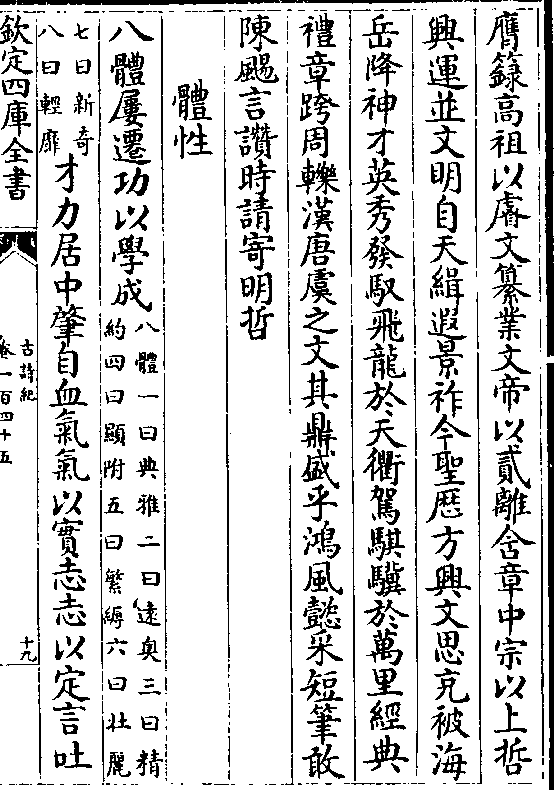 膺籙高祖以睿文纂業文帝以貳離含章中宗以上哲
興運並文明自天緝遐景祚今聖歴方興文思充被海
岳降神才英秀發馭飛龍於天衢駕騏驥於萬里經典
禮章跨周轢漢唐虞之文其鼎盛乎鴻風懿采短筆敢
陳颺言讚時請寄明哲
體性
八體屢遷功以學成
八體一曰典雅二曰遠奥三曰精
約四曰顯附五曰繁縟六曰壯麗
七曰新奇
八曰輕靡
才力居中肇自血氣氣以實志志以定言吐
欽定四庫全書
古詩紀
卷一百四十五
十九